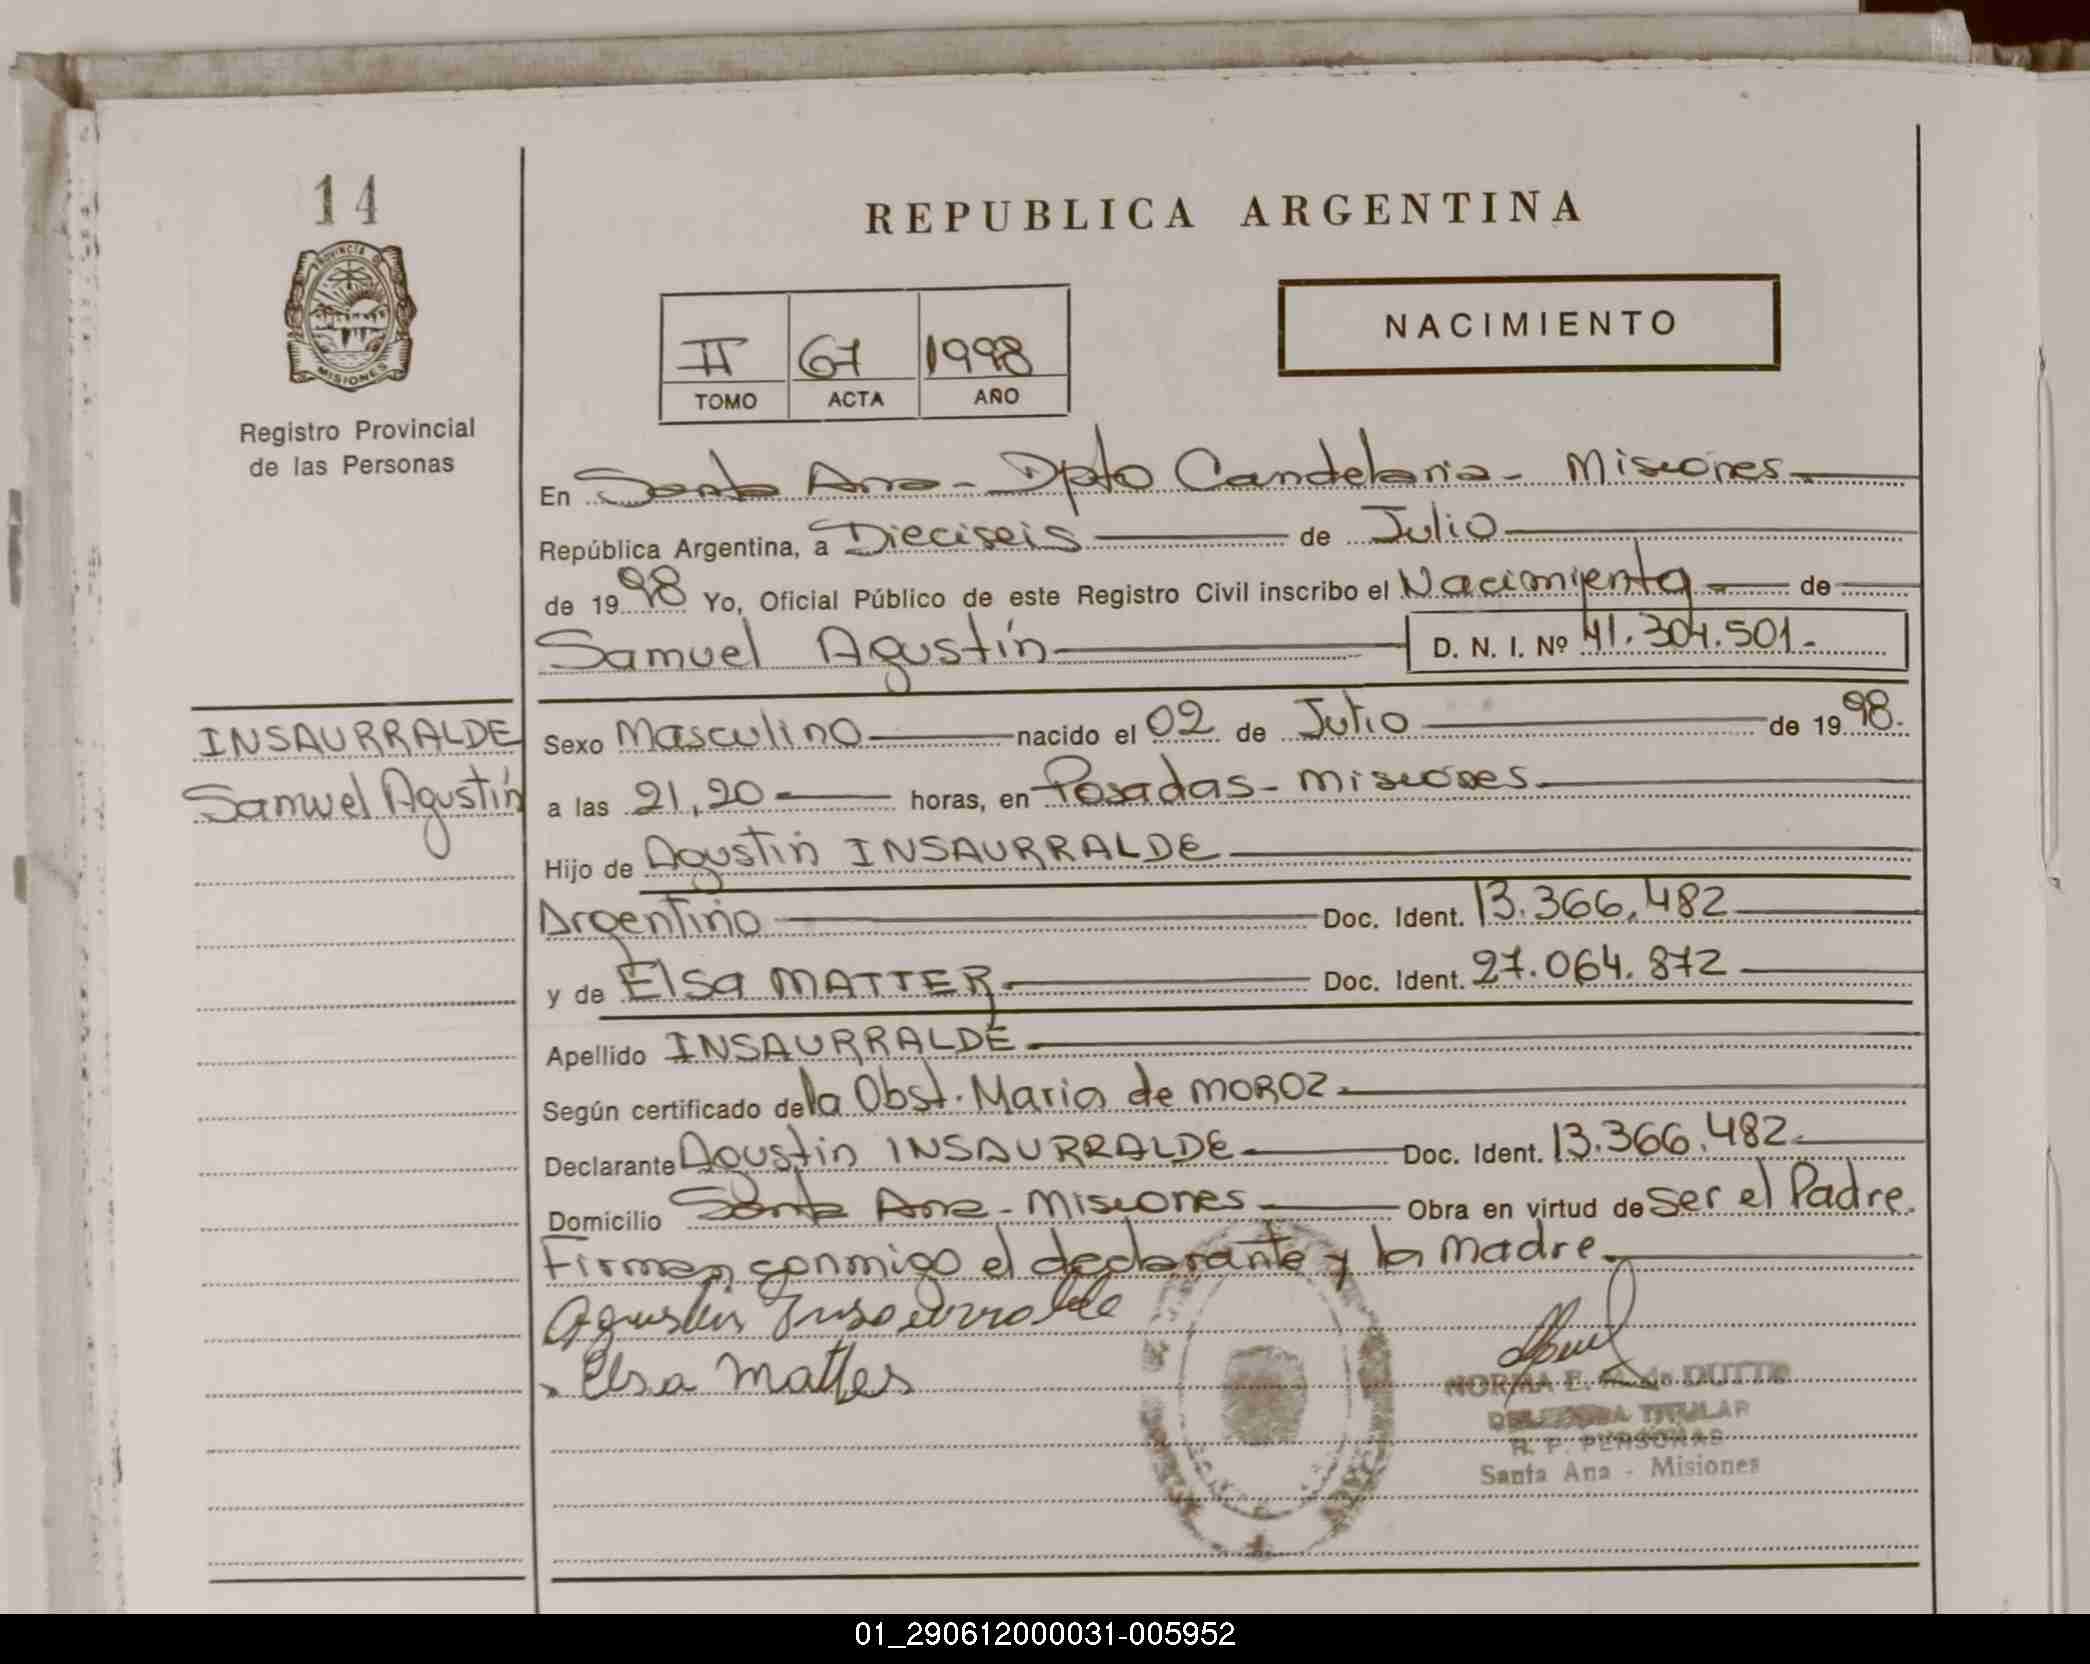 14
REPUBLICA ARGENTINA
PROVINCIA D
MISIONES
Registro Provincial
de las Personas
II 67 1998
TOMO ACTA AÑO
NACIMIENTO
En Santa Ana - Dpto Candelaria - Misiones
República Argentina, a Dieciseis de Julio
de 1998 Yo, Oficial Público de este Registro Civil inscribo el Nacimiento de
Samuel Agustín D. N. I. Nº 41.304.501.
INSAURRALDE
Samuel Agustín
Sexo Masculino nacido el 02 de Julio de 1998.
a las 21,20 horas, en Posadas - Misiones
Hijo de Agustín INSAURRALDE
Argentino Doc. Ident. 13.366.482
y de Elsa MATTER Doc. Ident. 27.064.872
Apellido INSAURRALDE
Según certificado de la Obst. Maria de MOROZ
Declarante Agustin INSAURRALDE Doc. Ident. 13.366.482
Domicilio Santa Ana - Misiones Obra en virtud de ser el Padre.
Firman conmigo el declarante y la Madre.
Agustin Insaurralde
Elsa Matter
NORMA E. de DUTTO
TITULAR
R. P. PERSONAS
Santa Ana - Misiones
01_290612000031-005952